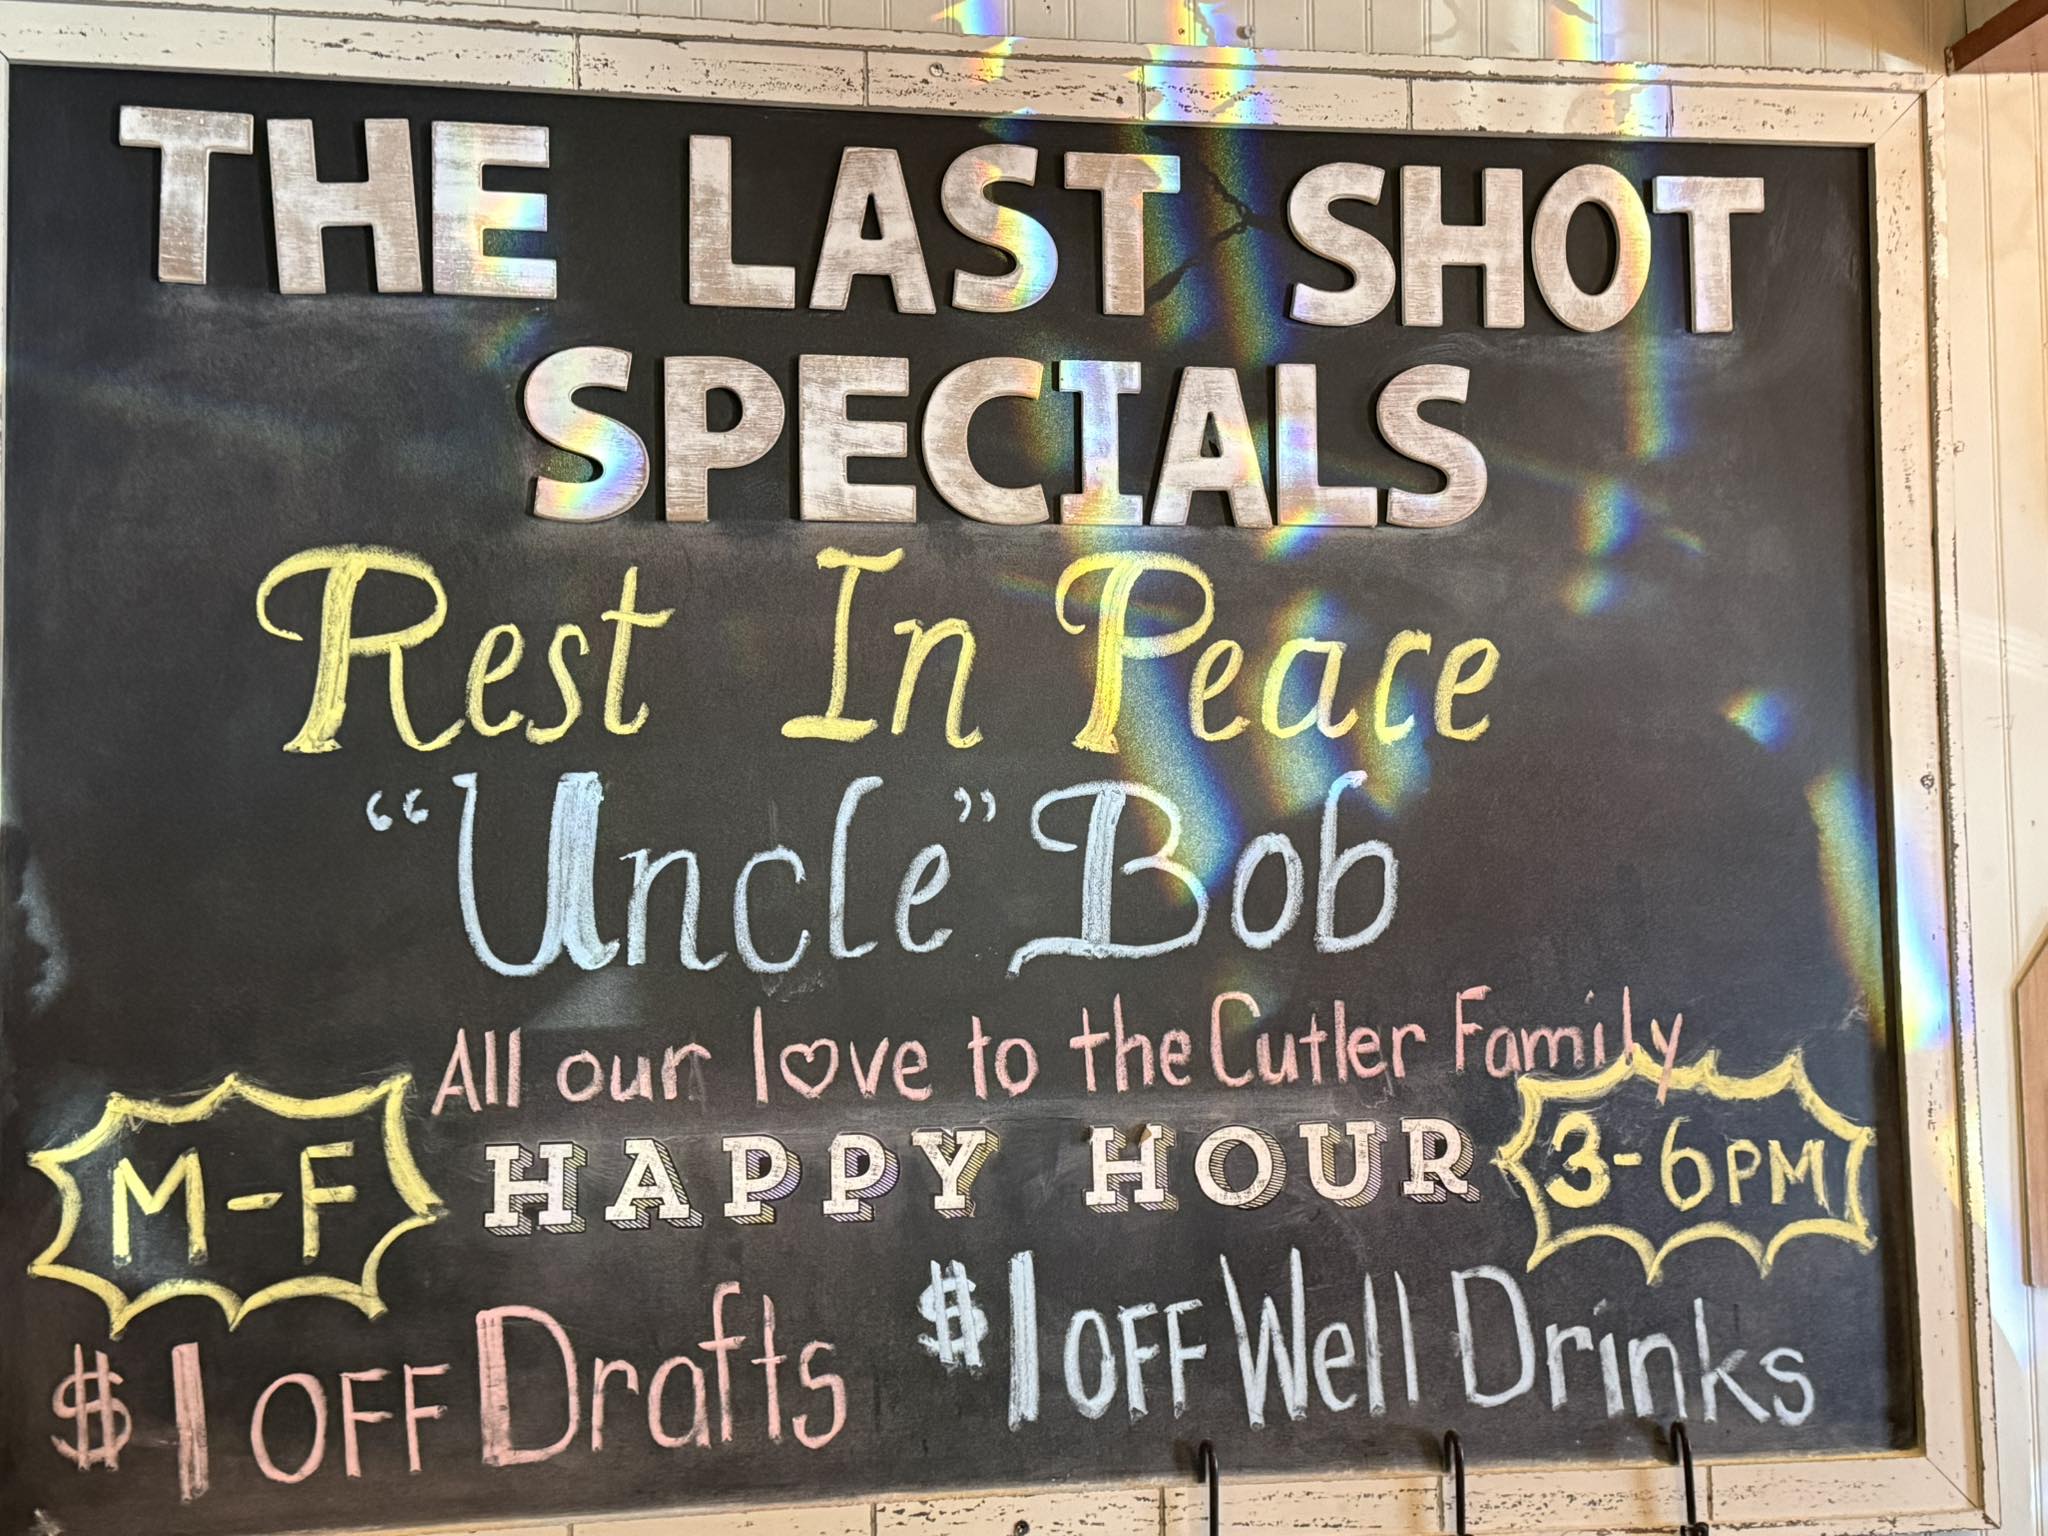 THE LAST SHOT
SPECIALS
Rest In Peace
“Uncle” Bob
All our love to the Cutler Family
M-F HAPPY HOUR 3-6PM
$1 OFF Drafts $1 OFF Well Drinks